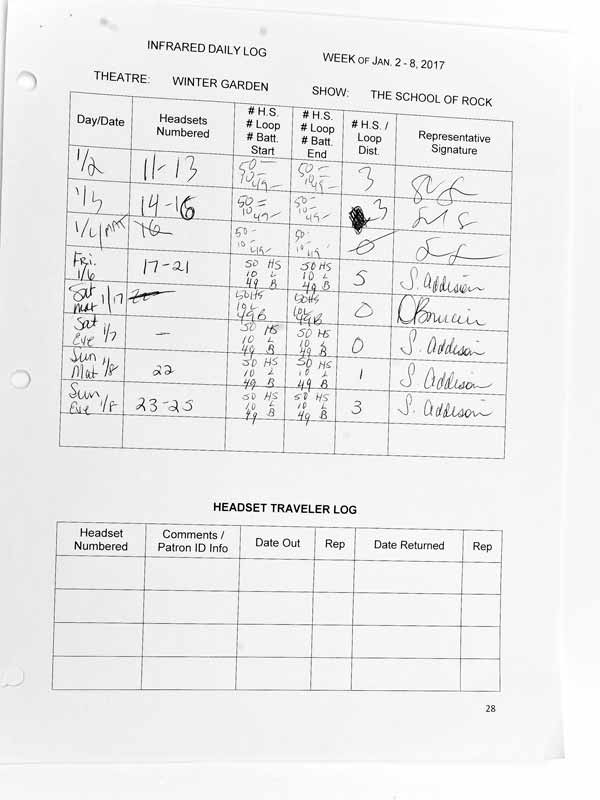 INFRARED DAILY LOG WEEK OF JAN. 2 - 8, 2017
THEATRE: WINTER GARDEN SHOW: THE SCHOOL OF ROCK
Day/Date Headsets Numbered # H.S. # Loop # Batt. Start # H.S. # Loop # Batt. End # H.S. / Loop Dist. Representative Signature
1/2 11-13 50- 10- 49- 50- 10- 49- 3
1/3 14-16 50- 10- 49- 50- 10- 49- 3
1/4 MAT 16 50- 10- 49- 50- 10- 49- 0
Fri. 1/6 17-21 50 HS 10 L 49 B 50 HS 10 L 49 B 5 S. Addison
Sat mat 1/7 50HS 10L 49B 50HS 10L 49B 0
Sat Eve 1/7 — 50 HS 10 L 49 B 50 HS 10 L 49 B 0 S. Addison
Sun Mat 1/8 22 50 HS 10 L 49 B 50 HS 10 L 49 B 1 S. Addison
Sun Eve 1/8 23-25 50 HS 10 L 49 B 50 HS 10 L 49 B 3 S. Addison
HEADSET TRAVELER LOG
Headset Numbered Comments / Patron ID Info Date Out Rep Date Returned Rep
28